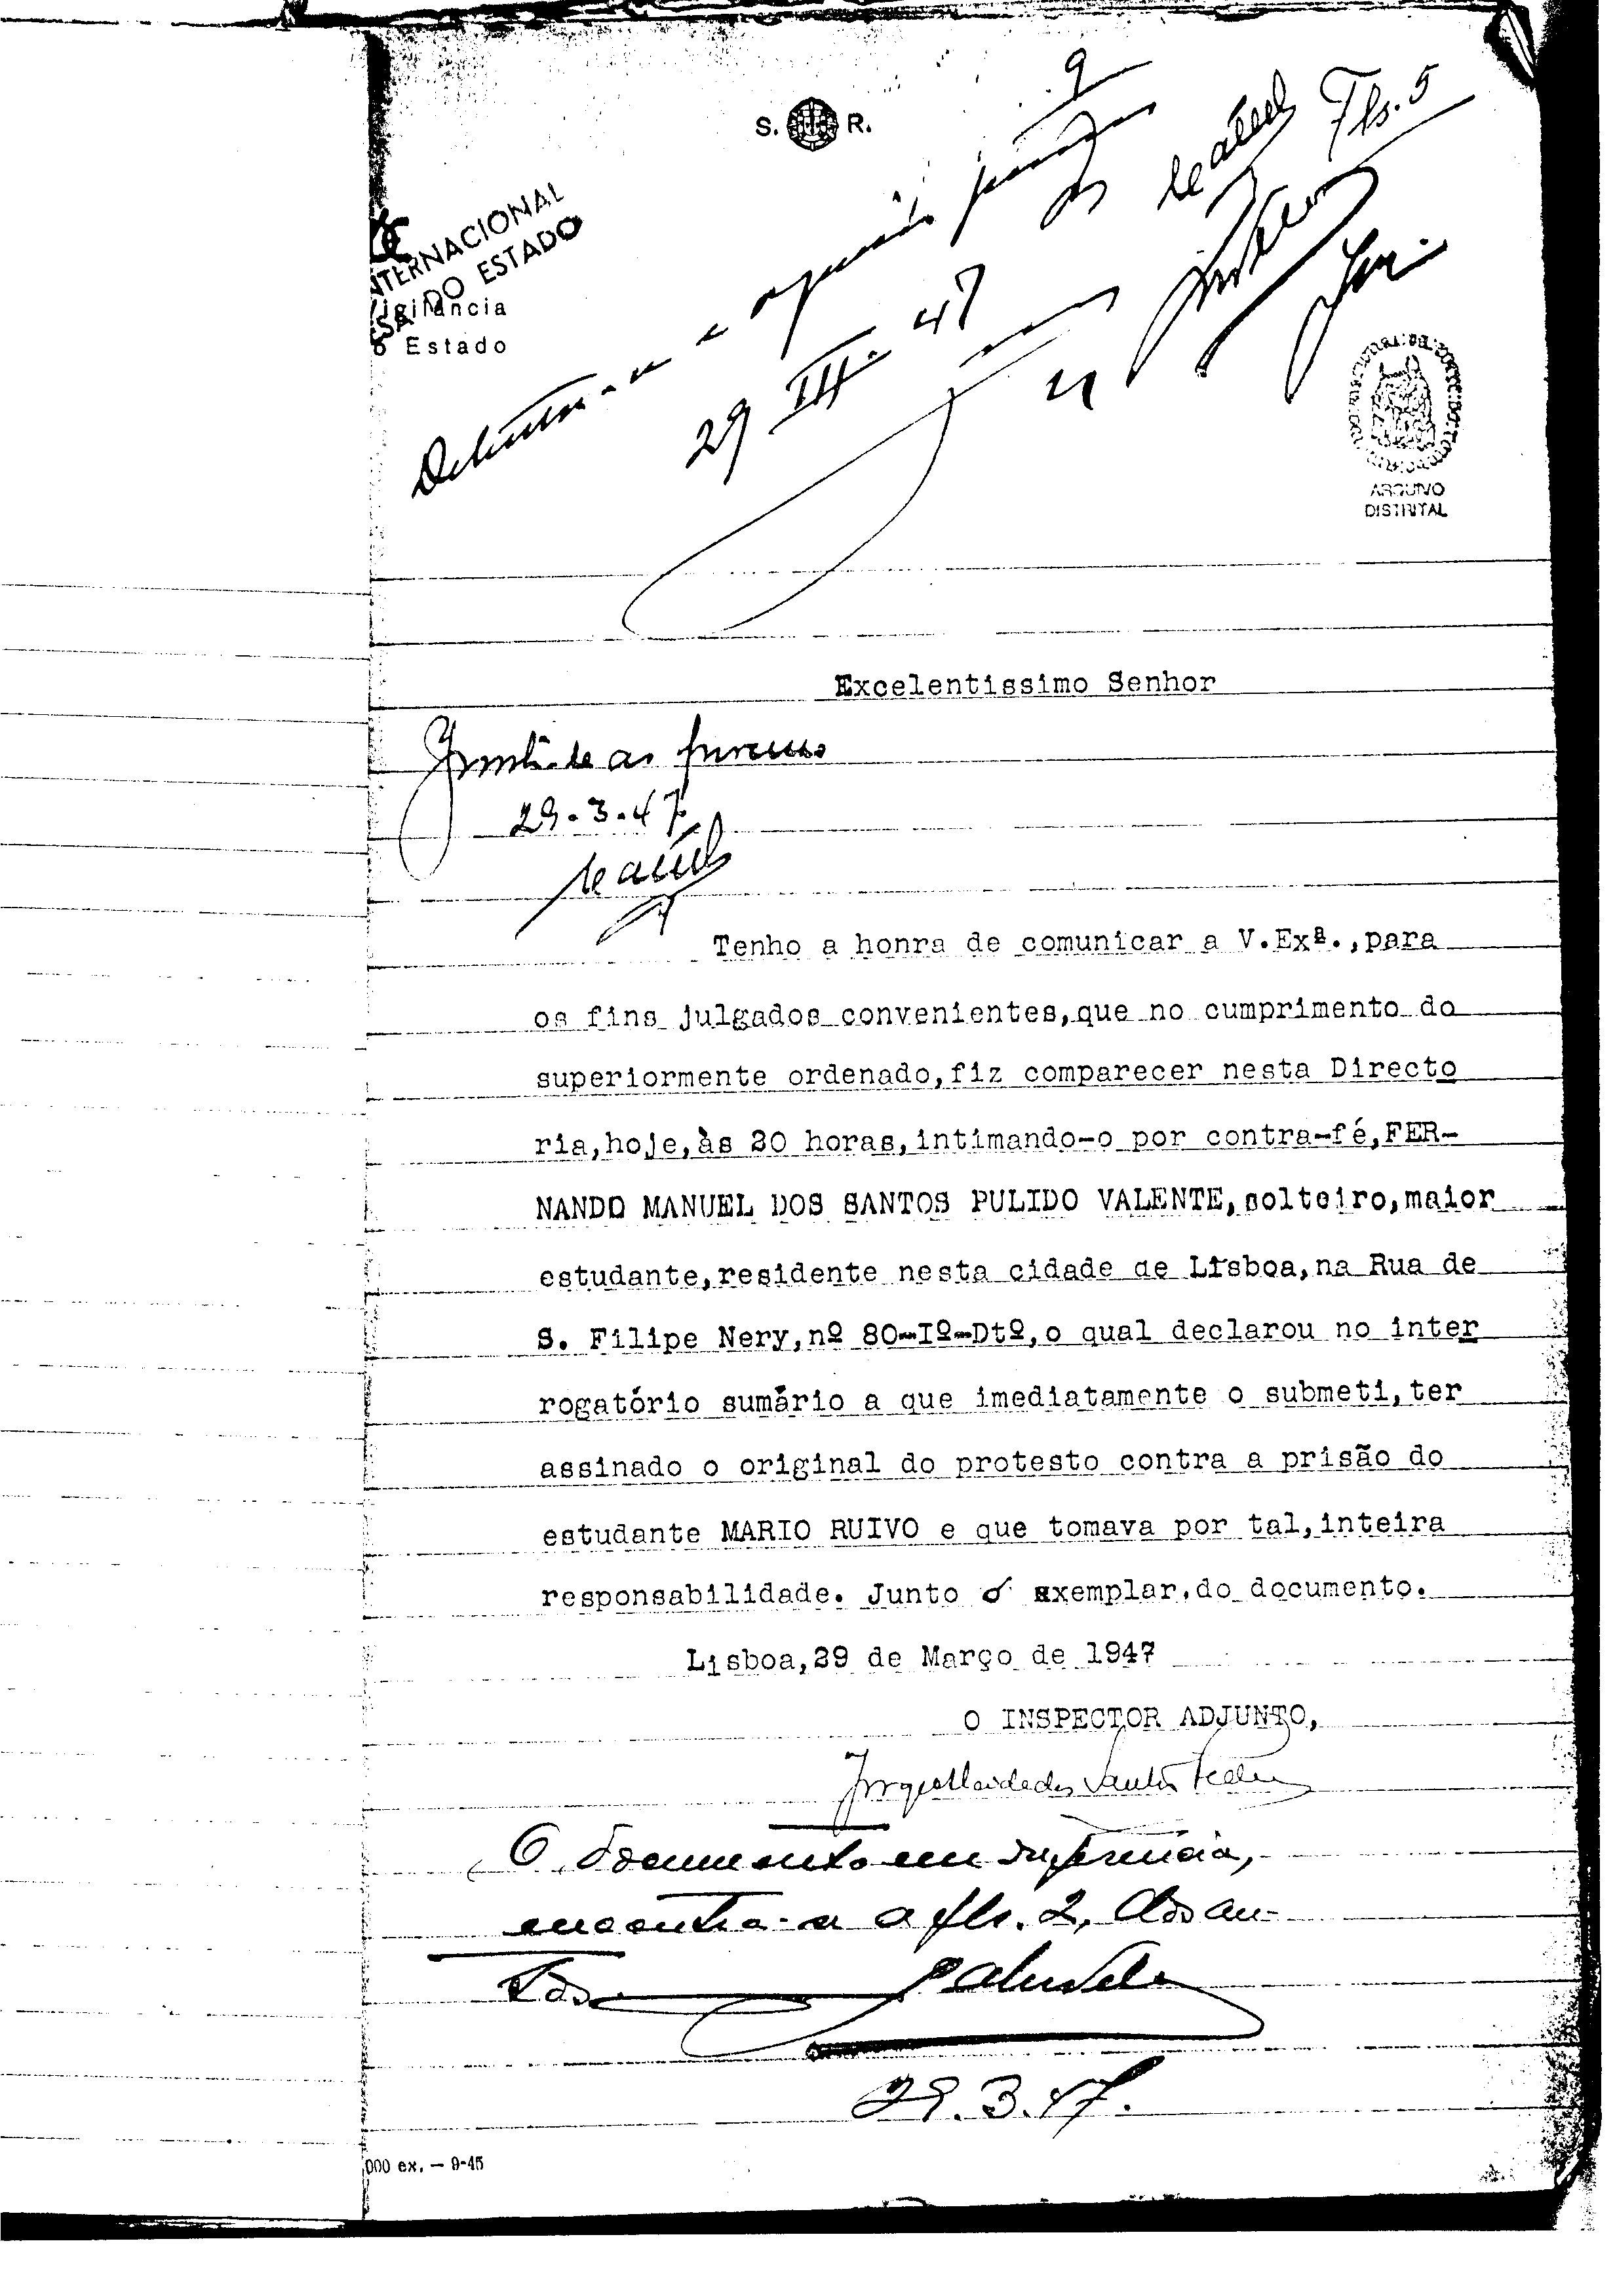 9
S. R.
Fls. 5
NTERNACIONAL
SA DO ESTADO
igilância
o Estado
29 III. 47
ARQUIVO
DISTRITAL
Excelentissimo Senhor
Junte-se ao processo
29-3-47
Tenho a honra de comunicar a V.Exª.,para
os fins julgados convenientes,que no cumprimento do
superiormente ordenado,fiz comparecer nesta Directo
ria,hoje,às 20 horas,intimando-o por contra-fé,FER-
NANDO MANUEL DOS SANTOS PULIDO VALENTE,solteiro,maior
estudante,residente nesta cidade de Lisboa,na Rua de
S. Filipe Nery,nº 80-Iº-Dtº,o qual declarou no inter
rogatório sumário a que imediatamente o submeti,ter
assinado o original do protesto contra a prisão do
estudante MARIO RUIVO e que tomava por tal,inteira
responsabilidade. Junto o exemplar.do documento.
Lisboa,29 de Março de 1947
O INSPECTOR ADJUNTO,
O documento em referencia,
encontra-se a fls. 2, dos au-
tos
29.3.47.
000 ex. — 9-45